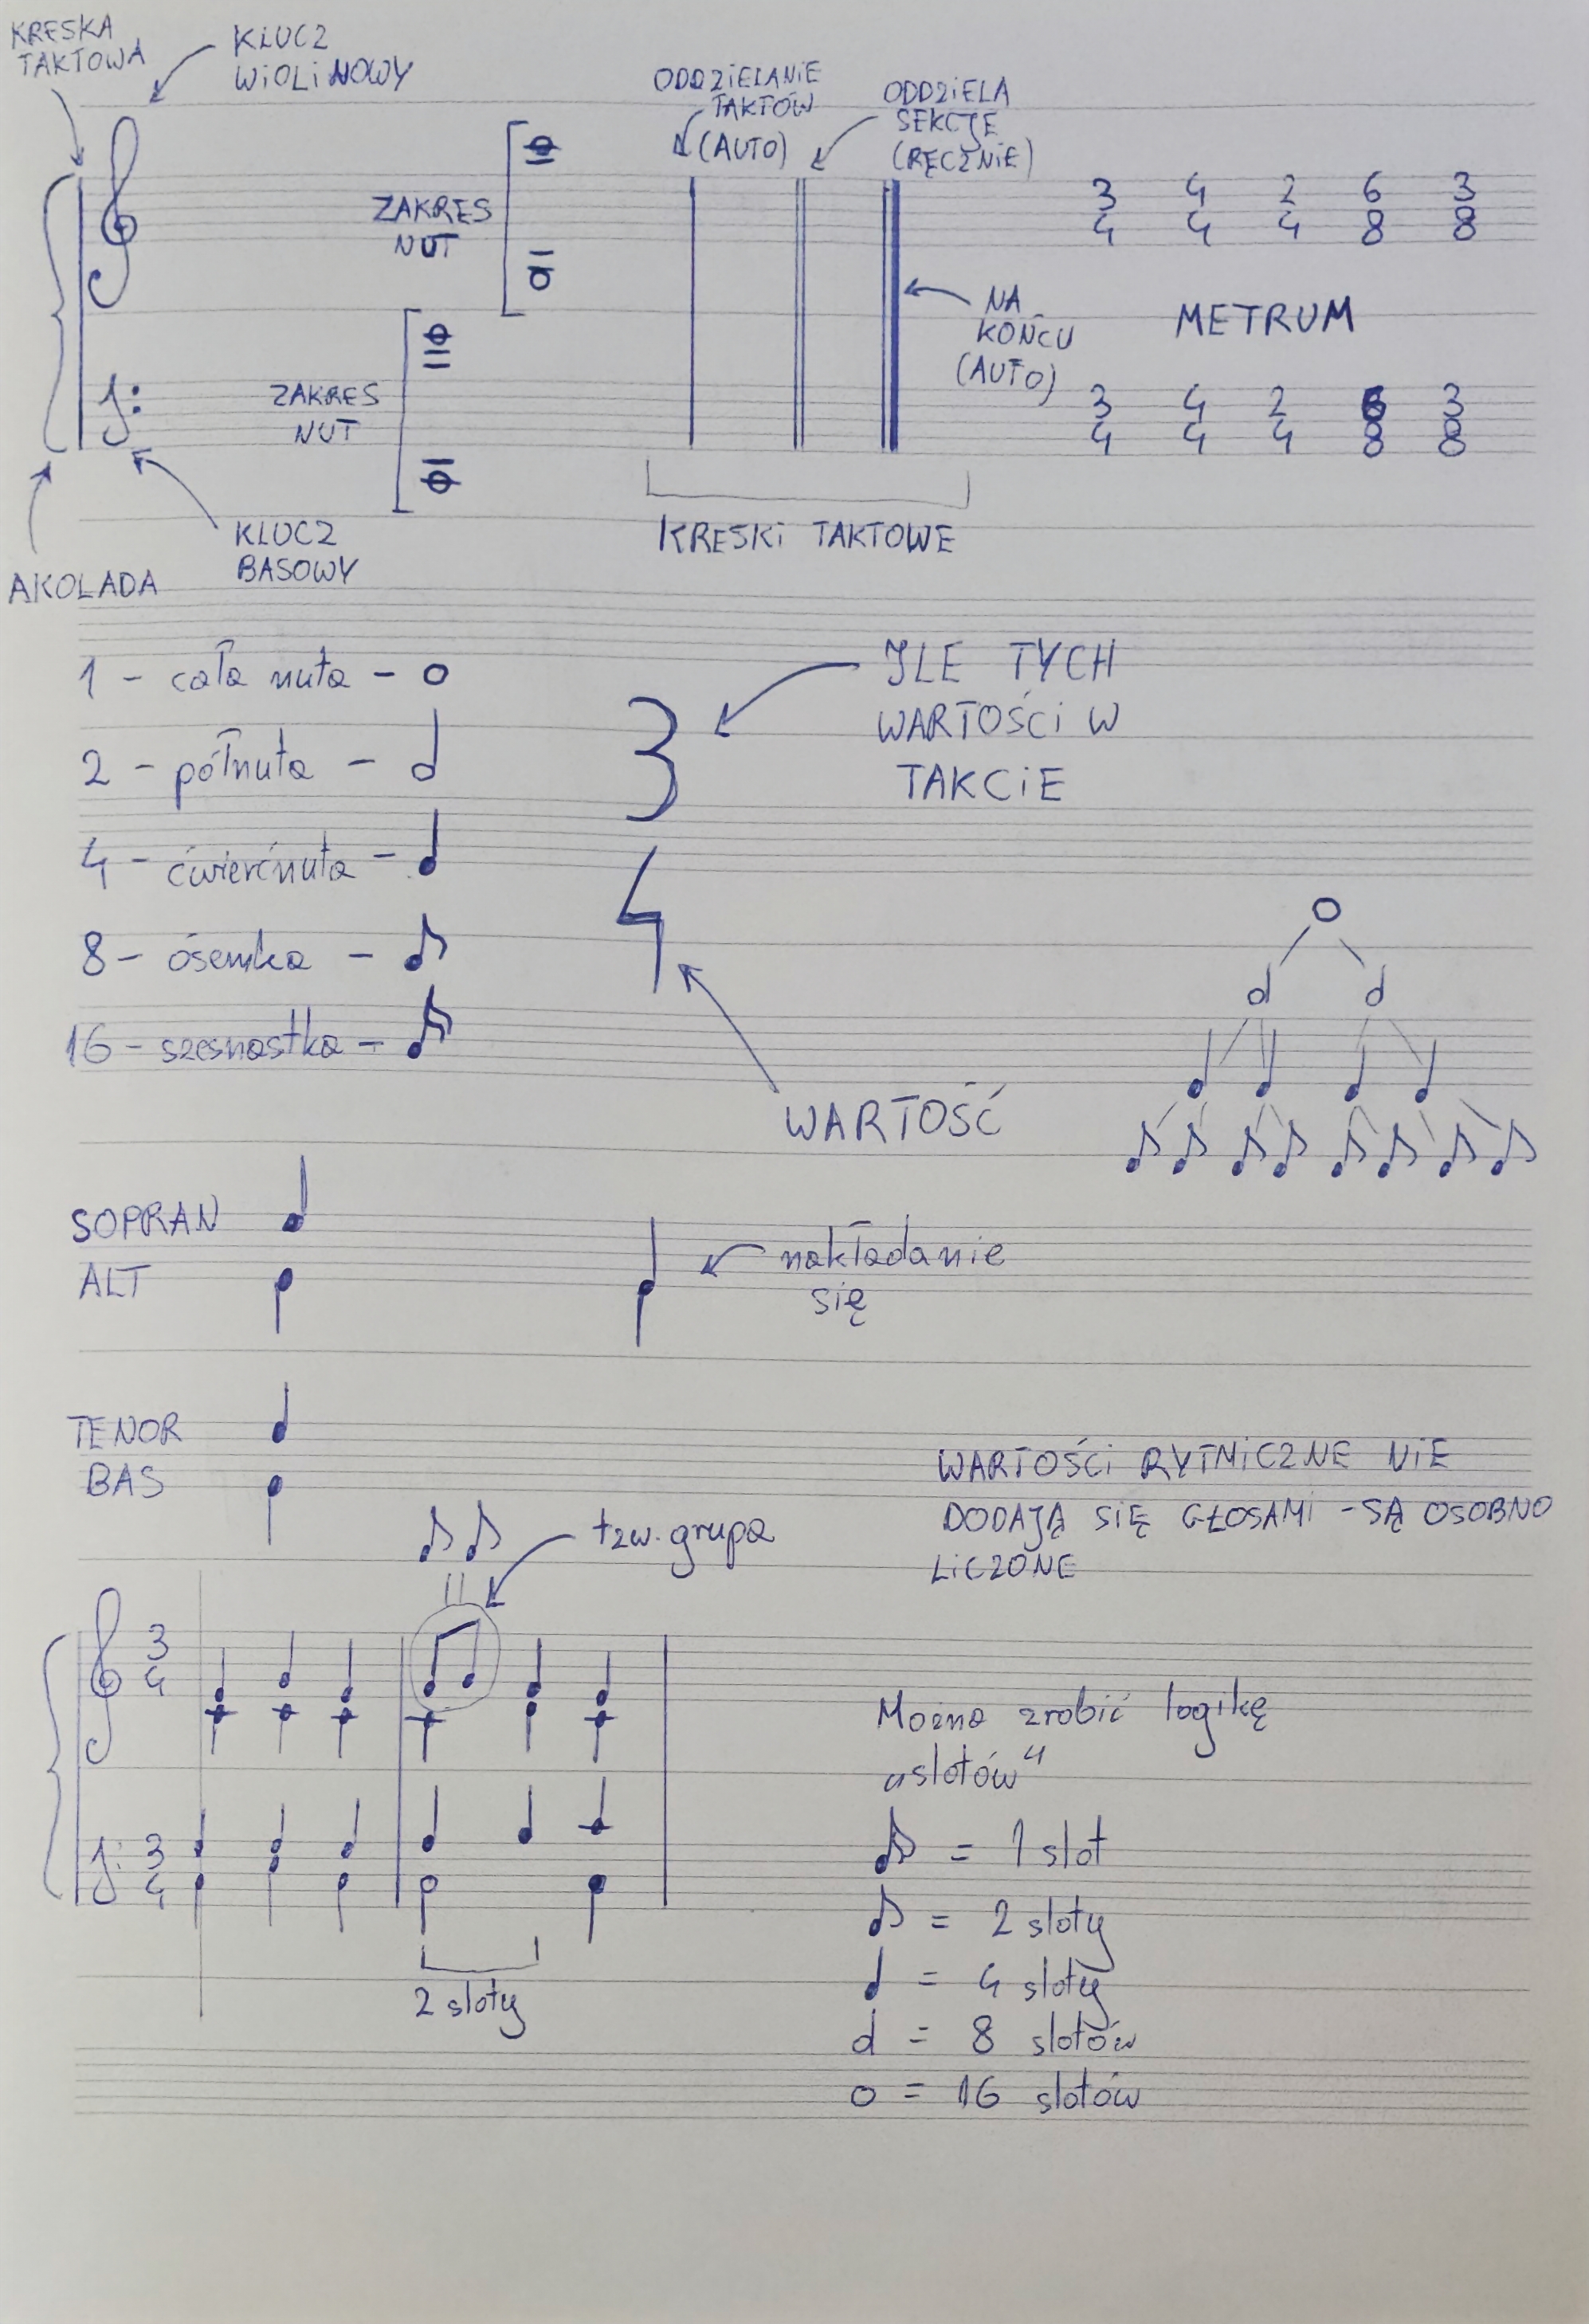 KRESKA
TAKTOWA
KLUCZ
WIOLINOWY
ODDZIELANIE
TAKTÓW
(AUTO)
ODDZIELA
SEKCJE
(RĘCZNIE)
ZAKRES
NUT
3 4 2 6 3
4 4 4 8 8
NA
KOŃCU
(AUTO)
METRUM
ZAKRES
NUT
3 4 2 6 3
4 4 4 8 8
KLUCZ
BASOWY
AKOLADA
KRESKI TAKTOWE
1 - cała nuta -
2 - półnuta -
4 - ćwierćnuta -
8 - ósemka -
16 - szesnastka -
3
4
ILE TYCH
WARTOŚCI W
TAKCIE
WARTOŚĆ
SOPRAN
ALT
nakładanie
się
TENOR
BAS
WARTOŚCI RYTMICZNE NIE
DODAJĄ SIĘ GŁOSAMI - SĄ OSOBNO
LICZONE
tzw. grupa
3
4
3
4
2 sloty
Można zrobić logikę
„slotów"
= 1 slot
= 2 sloty
= 4 sloty
= 8 slotów
= 16 slotów